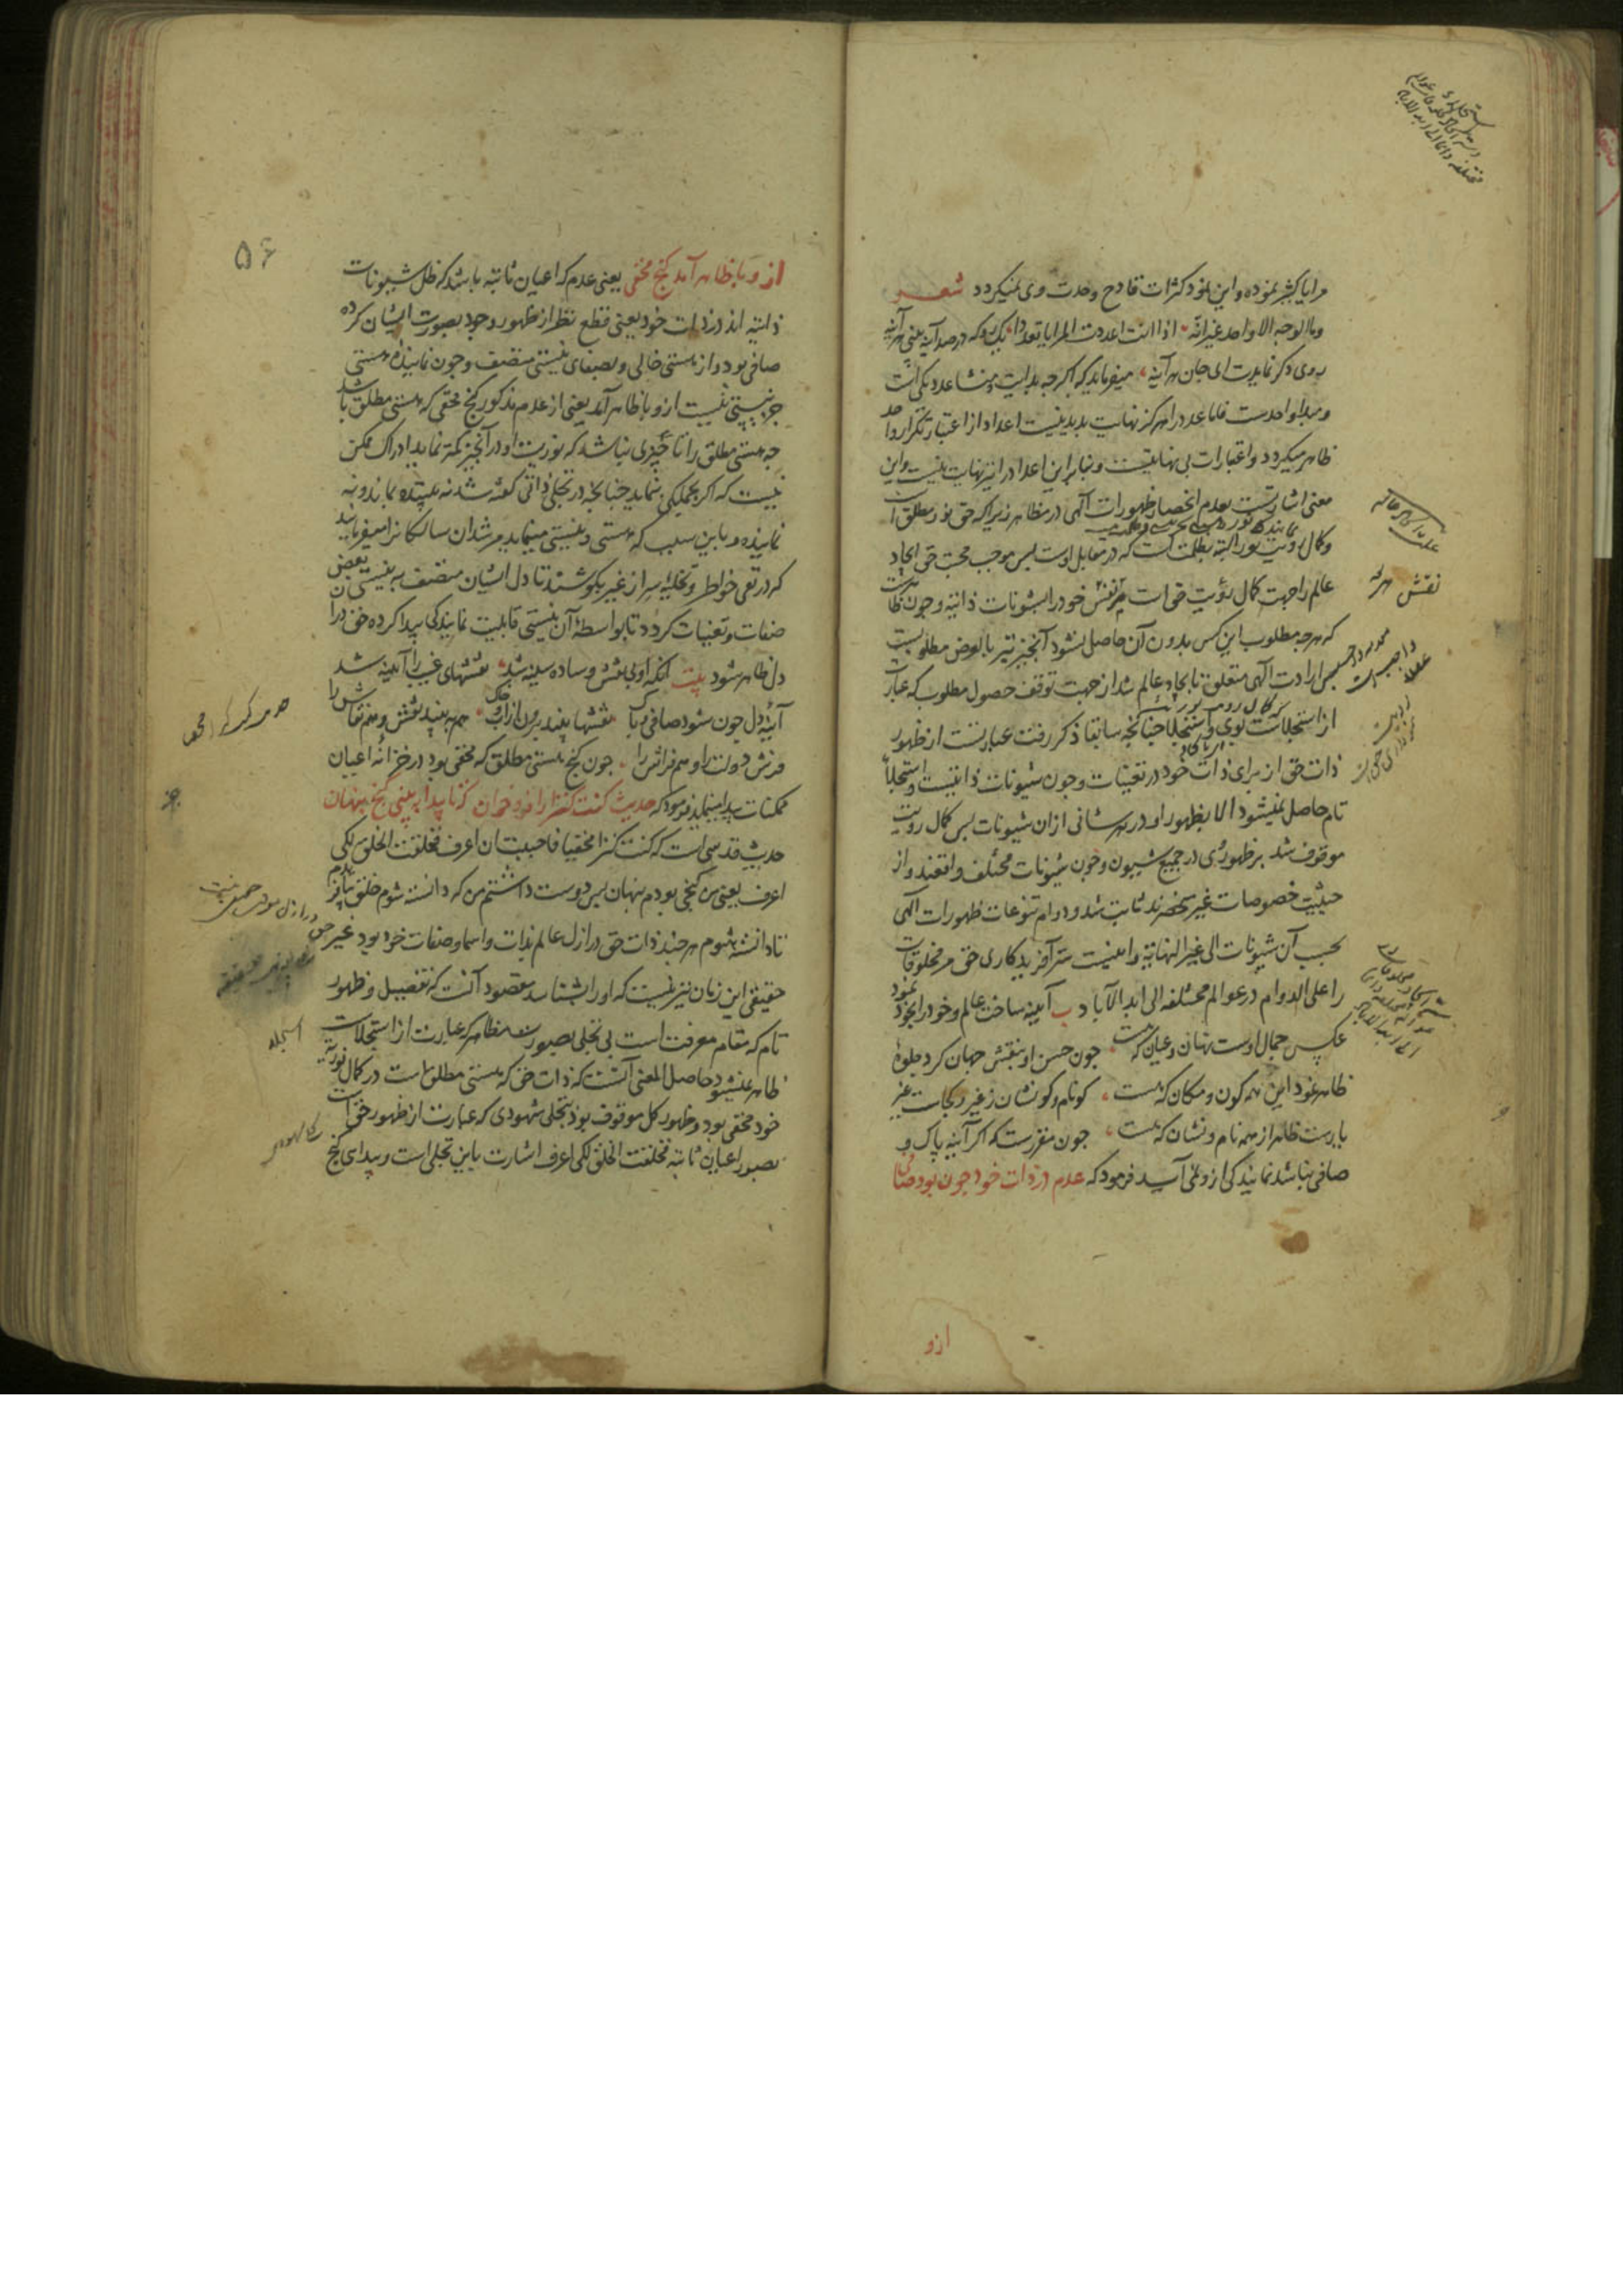 مرایا کثیر نموده و این نمود کثرات قادح وحدت وی نمیکردد شعر
وما الوجه الا واحد غیر انّه اذا انت اعددت المرایا تعددا یک رو که در صد آینه بینی هر آینه
روی دکر نمایدت ای جان هر آینه میفرماید که اکرچه بدایت و منشا عدد یکی است
و مبدا واحدست فاما عدد را هرکز نهایت پدید نیست اعداد از اعتبار تکرار واحد
ظاهر میکردد و اعتبارات بی نهایتست و بنابراین اعداد را نیز نهایت نیست و این
معنی اشارتست بعدم انحصار ظهورات آلهی در مظاهر زیراکه حق نور مطلق است
وکمال رویت نور البته بظلمت است که در مقابل اوست پس موجب محبت حق ایجاد
عالم را جهت کمال رؤیت حق است مر نفس خود را بشیونات ذاتیه و چون
که هرچه مطلوب این کس بدون آن حاصل نشود آنچیز نیز بالعرض مطلوبست
پس ارادت آلهی متعلق بایجاد عالم شد از جهت توقف حصول مطلوب که عبارت
از استجلاست بوی و استجلا چنانچه سابقا ذکر رفت عبارتست از ظهور
ذات حق از برای ذات خود در تعینات و چون شیونات ذاتیست و استجلاء
تام حاصل نمیشود الا بظهور او در هر شانی از آن شیونات پس کمال رویت
موقوف شد بر ظهور وی در جمیع شیون و چون شیونات مختلف واقعند و از
حیثیت خصوصات غیر منحصرند ثابت شد و دوام تنوعات ظهورات الهی
بحسب آن شیونات الی غیر النهایة و اینست سر آفریدکاری حق مر مخلوقات
را علی الدوام در عوالم مختلفه الی ابد الآباد ب آیینه ساخت عالم و خود را بخود نمود
عکس جمال اوست نهان و عیان که هست چون حسن او بنقش جهان کرد جلوهٔ
ظاهر نمود این همه کون و مکان که هست کو نام و کو نشان ز غیر و کجاست غیر
یارست ظاهر از همه نام و نشان که هست چون مقررست که اکر آینه پاک و
صافی نباشد نمایندکی ازو نمی آید فرمود که عدم در ذات خود چون بود صافی
ازو
۵۶
ازو با ظاهر آمد کنج مخفی یعنی عدم که اعیان ثابته باشد که ظل شیونات
ذاتیه اند در ذات خود یعنی قطع نظر از ظهور وجود بصورت ایشان کرده
صافی بود و از هستی خالی و بصفای نیستی متصف و چون نماینده هستی
جز نیستی نیست ازو با ظاهر آمد یعنی از عدم مذکور کنج مخفی که هستی مطلق باشد
چه هستی مطلق را تا چیزی نباشد که نوریت او در آنچیز کمتر نماید ادراک ممکن
نیست که اکر بجملکی بنماید چنانچه در تجلی ذاتی کفته شد نه بیننده ماند و نه
نماینده و باین سبب که هستی در نیستی مینماید مرشدان سالکانرا میفرمایند
که در نفی خواطر و تخلیهٔ سر از غیر بکوشند تا دل ایشان متصف به نیستی از بعض
صفات و تعینات کردد تا بواسطهٔ آن نیستی قابلیت نمایندکی پیدا کرده حق در آ
دل ظاهر شود بیت آنکه او بی نقش و ساده سینه شد نقشهای غیب را آیینه شد
آینهٔ دل چون شود صافی و پاک نقشها بیند برون از آب و خاک هم ببیند نقش و هم نقاش را
فرش دولت را و هم فراش را چون کنج هستی مطلق که مخفی بود در خزانهٔ اعیان
ممکنات پیدا مینماید فرمود که حدیث کنت کنزا را فرو خوان که تا پیدا ببینی کنج پنهان
حدیث قدسی است که کنت کنزا مخفیا فاحببت ان اعرف فخلقت الخلق لکی
اعرف یعنی من کنجی بودم پنهان پس دوست داشتم من که دانسته شوم خلق
تا دانسته شوم هر چند ذات حق در ازل عالم بذات و اسما و صفات خود بود غیر حق
حقیقی این زمان نیز نیست که او را بشناسد مقصود آنست که تفصیل و ظهور
تام که مقام معرفت است بی تجلی بصور مظاهر که عبارت از استجلاست
ظاهر نمیشود حاصل المعنی آنست که ذات حق که هستی مطلق است در کمال نوریة
خود مخفی بود و ظهور کل موقوف بود بتجلی شهودی که عبارت از ظهور حق است
بصور اعیان ثابته فخلقت الخلق لکی اعرف اشارت باین تجلی است و پیدای کنج